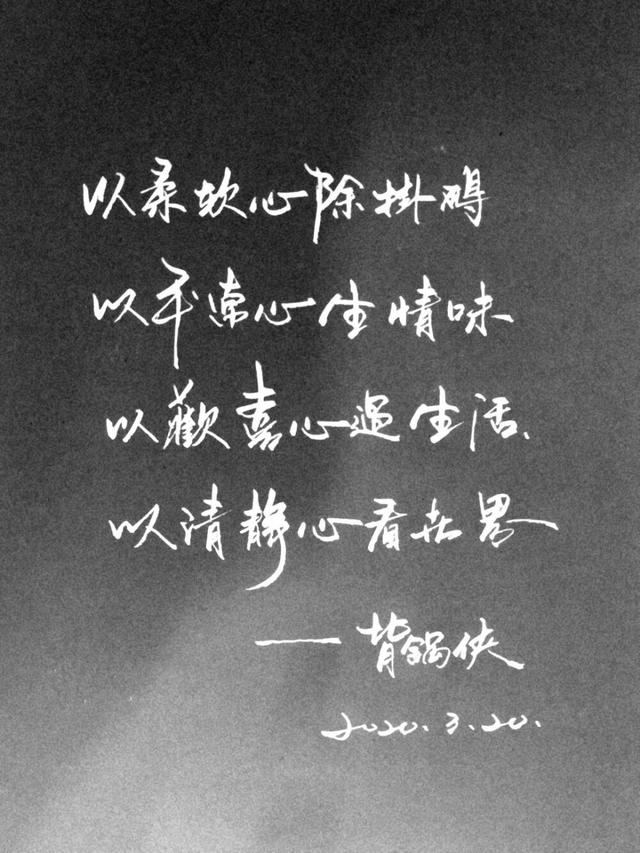 以柔软心除掛碍
以平常心生情味
以歡喜心過生活、
以清静心看世界
——背锅侠
2020.3.20.